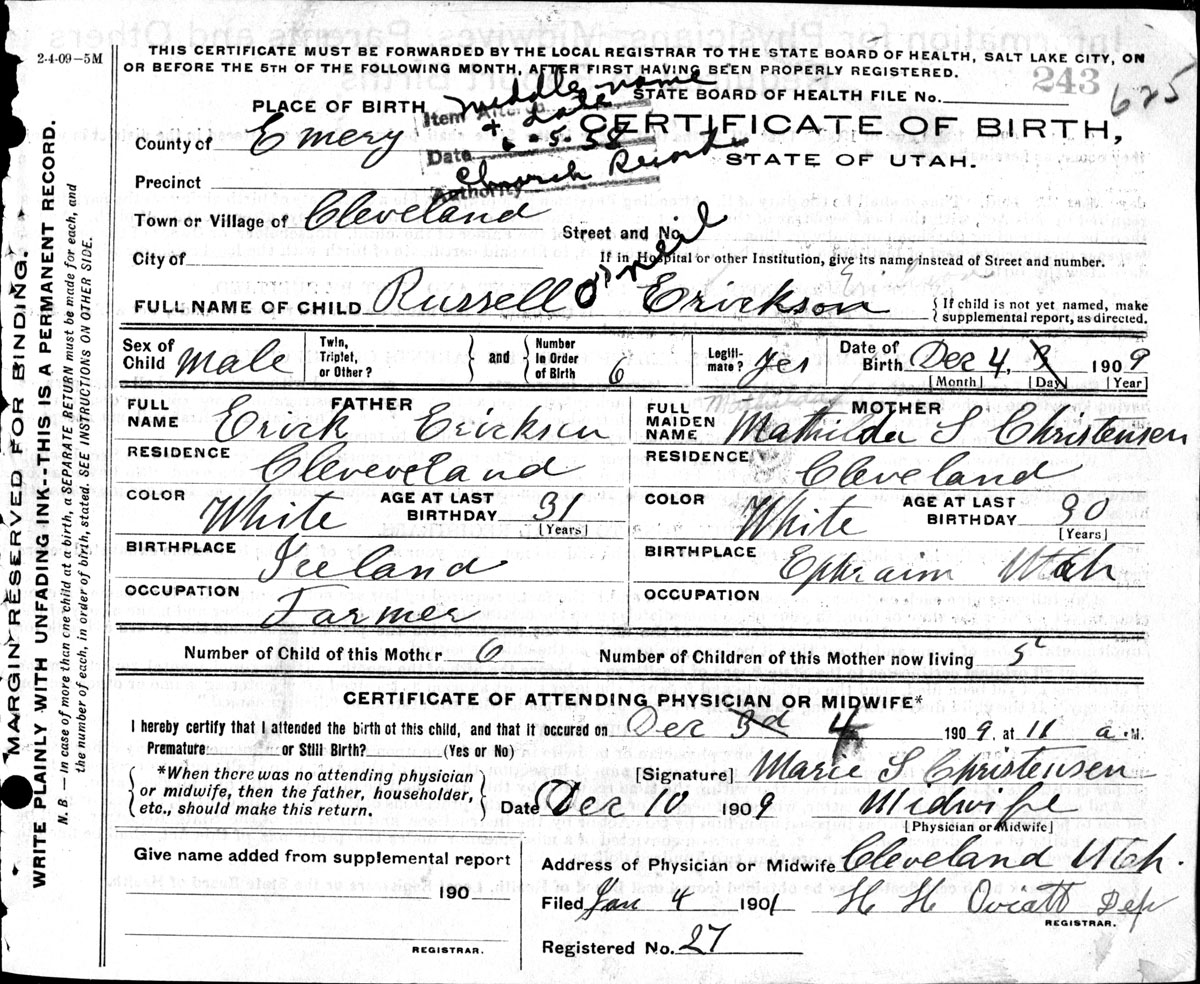 2-4-09-5M
THIS CERTIFICATE MUST BE FORWARDED BY THE LOCAL REGISTRAR TO THE STATE BOARD OF HEALTH, SALT LAKE CITY, ON
OR BEFORE THE 5TH OF THE FOLLOWING MONTH, AFTER FIRST HAVING BEEN PROPERLY REGISTERED.
243
625
STATE BOARD OF HEALTH FILE No.
PLACE OF BIRTH
Item Altered middle name
+ Date
Date 6-5-58
Authority Church Records
CERTIFICATE OF BIRTH,
STATE OF UTAH.
County of Emery
Precinct
Town or Village of Cleveland
Street and No.
City of
If in Hospital or other Institution, give its name instead of Street and number.
FULL NAME OF CHILD Russell O'neil Erickson
{If child is not yet named, make
supplemental report, as directed.
Sex of Child Male
Twin, Triplet, or Other?
and
Number in Order of Birth 6
Legiti-mate? yes
Date of Birth Dec 4, 3 1909
[Month] [Day] [Year]
FATHER
FULL NAME Erick Erickson
RESIDENCE Cleveveland
COLOR White
AGE AT LAST BIRTHDAY 31
[Years]
BIRTHPLACE Iceland
OCCUPATION Farmer
MOTHER
Mathilda
FULL MAIDEN NAME Mathilda S Christensen
RESIDENCE Cleveland
COLOR White
AGE AT LAST BIRTHDAY 30
[Years]
BIRTHPLACE Ephraim Utah
OCCUPATION
Number of Child of this Mother 6
Number of Children of this Mother now living 5
CERTIFICATE OF ATTENDING PHYSICIAN OR MIDWIFE*
I hereby certify that I attended the birth of this child, and that it occured on Dec 3d 4 1909, at 11 a.M.
Premature or Still Birth? (Yes or No)
*When there was no attending physician
or midwife, then the father, householder,
etc., should make this return.
[Signature] Marie S Christensen
Date Dec 10 1909 Midwife
[Physician or Midwife]
Give name added from supplemental report
190
REGISTRAR.
Address of Physician or Midwife Cleveland Utah.
Filed Jan 4 1901 H H Oviatt Dep
REGISTRAR.
Registered No. 27
MARGIN RESERVED FOR BINDING.
WRITE PLAINLY WITH UNFADING INK--THIS IS A PERMANENT RECORD.
N. B.—In case of more than one child at a birth, a SEPARATE RETURN must be made for each, and
the number of each, in order of birth, stated. SEE INSTRUCTIONS ON OTHER SIDE.